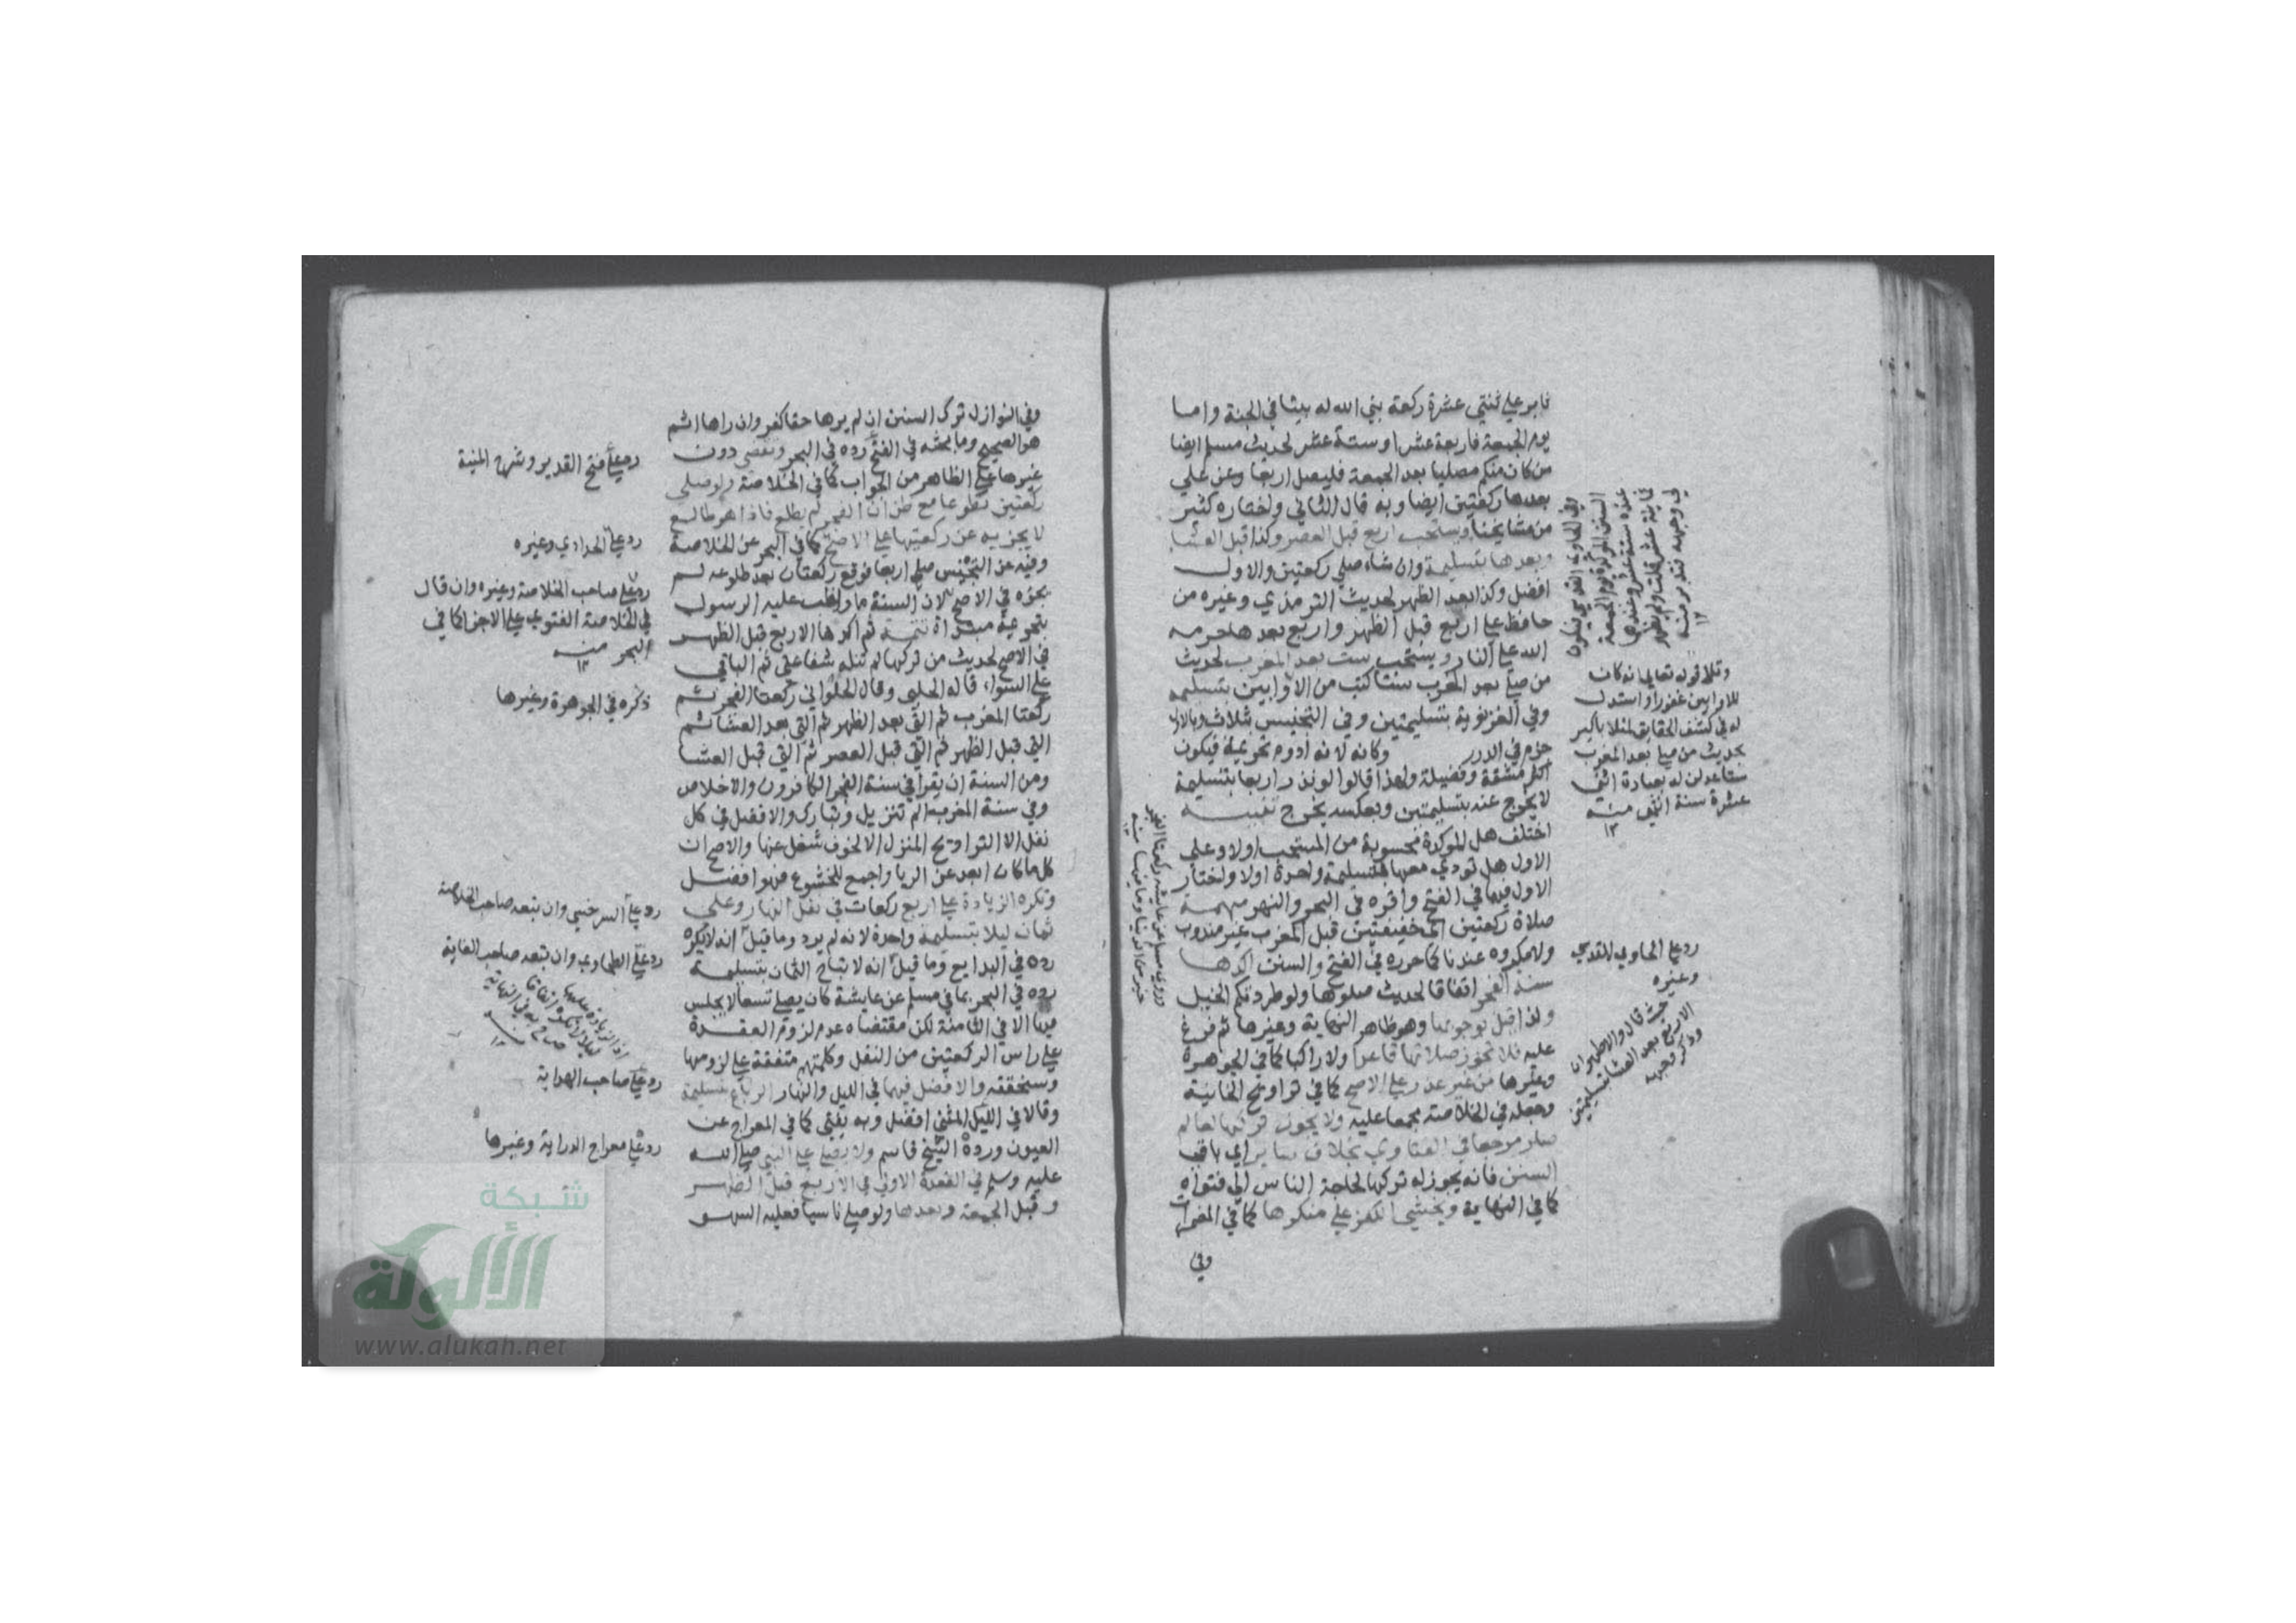 ثابر على ثنتي عشرة ركعة بني الله له بيتا في الجنة واما
يوم الجمعة فاربعة عشر او ستة عشر لحديث مسلم ايضا
من كان منكم مصليا بعد الجمعة فليصل اربعا وعن علي
بعدها ركعتين ايضا وبه قال الثاني واختاره كثير
من مشايخنا ويستحب اربع قبل العصر وكذا قبل العشا
وبعدها بتسليمة وان شاء صلى ركعتين والاول
افضل وكذا بعد الظهر لحديث الترمذي وغيره من
حافظ على اربع قبل الظهر واربع بعدها حرمه
الله على النار ويستحب ست بعد المغرب لحديث
من صلى بعد المغرب ستا كتب من الاوابين بتسليمة
وفي الغزنوية بتسليمتين وفي التجنيس بثلاث وبالاول
جزم في الدرر وكانه لانه ادوم تحريمة فيكون
اكثر مشقة وفضيلة ولهذا قالوا لو نذر اربعا بتسليمة
لا يخرج عنه بتسليمتين وبعكسه يخرج
اختلف هل المؤكدة محسوبة من المستحب اولا وعلى
الاول هل تودي معها بتسليمة واحدة اولا واختار
الاول فيهما في الفتح واقره في البحر والنهر مهمة
صلاة ركعتين خفيفتين قبل المغرب غير مندوب
ولا مكروه عندنا كما حرره في الفتح والسنن اكدها
سنة الفجر اتفاقا لحديث صلوها ولو طردتكم الخيل
ولذا قيل بوجوبها وهو ظاهر النهاية وغيرها ثم فرع
عليه فلا تجوز صلاتها قاعدا ولا راكبا كما في الجوهرة
وغيرها من غير عذر على الاصح كما في تراويح الخانية
وجعله في الخلاصة مجمعا عليه ولا يجوز تركها لعالم
صار مرجعا في الفتاوي بخلاف باقي
السنن فانه يجوز له تركها لحاجة الناس الى فتواه
كما في النهاية ويخشى الكفر على منكرها كما في المضمرات
وفي
وفي الحاوي القدسي
السنن المؤكدة يوم الجمعة
عنده ستة عشر وعندهما
وتلا قوله تعالى انه كان
للاوابين غفورا واستدل
له في كشف الحقايق لمنلا باكير
بحديث من صلى بعد المغرب
ستا عدلن له بعبادة اثنتي
عشرة سنة انتهى منه
١٢
رد على الحاوي القدسي
وغيره
حيث قال والاظهر ان
الاربع بعد العشا بتسليمتين
وذكر وجهه
روى مسلم عن عايشة ركعتا الفجر
خير من الدنيا وما فيها منه
وفي النوازل ترك السنن ان لم يرها حقا كفر وان راها اثم
هو الصحيح وما بحثه في الفتح رده في البحر وتقضى دون
غيرها على الظاهر من الجواب كما في الخلاصة ولو صلى
ركعتين تطوعا مع ظن ان الفجر لم يطلع فاذا هو طالع
لا يجزيه عن ركعتيها على الاصح كما في البحر عن الخلاصة
وفيه عن التجنيس صلى اربعا فوقع ركعتان بعد طلوعه لم
يجزه في الاصح لان السنة ما واظب عليه الرسول
بتحريمة مبتداة تتمة ثم اكدها الاربع قبل الظهر
في الاصح لحديث من تركها لم تنله شفاعتي ثم الباقي
على السواء قاله الحلبي وقال الحلواني ركعتا الفجر ثم
ركعتا المغرب ثم التي بعد الظهر ثم التي بعد العشا ثم
التي قبل الظهر ثم التي قبل العصر ثم التي قبل العشا
ومن السنة ان يقرا في سنة الفجر الكافرون والاخلاص
وفي سنة المغرب الم تنزيل وتبارك والافضل في كل
نفل الا التراويح المنزل الا لخوف شغل عنها والاصح ان
كل ما كان ابعد عن الريا واجمع للخشوع فهو افضل
وتكره الزيادة على اربع ركعات في نفل النهار وعلى
ثمان ليلا بتسليمة واحدة لانه لم يرد وما قيل انه لا يكره
رده في البدايع وما قيل انه لا تباح الثمان بتسليمة
رده في البحر بما في مسلم عن عايشة كان يصلي تسعا لا يجلس
فيها الا في الثامنة لكن مقتضاه عدم لزوم القعدة
على راس الركعتين من النفل وكلمتهم متفقة على لزومها
وسنحققه والافضل فيهما في الليل والنهار الرباع بتسليمة
وقالا في الليل المثنى افضل وبه يفتى كما في المعراج عن
العيون ورده الشيخ قاسم ولا يصلي على النبي صلى الله
عليه وسلم في القعدة الاولى في الاربع قبل الظهر
وقبل الجمعة وبعدها ولو صلى ناسيا فعليه السهو
رد على فتح القدير وشرح المنية
رد على الحدادي وغيره
رد على صاحب الخلاصة وغيره وان قال
في الخلاصة الفتوى على الاجزا كما في
البحر منه
١٢
ذكره في الجوهرة وغيرها
رد على السرخسي وان تبعه صاحب الخلاصة
رد على الطحاوي وان تبعه صاحب الغاية
رد على صاحب الهداية
رد على معراج الدراية وغيرها
شبكة
الألوكة
www.alukah.net